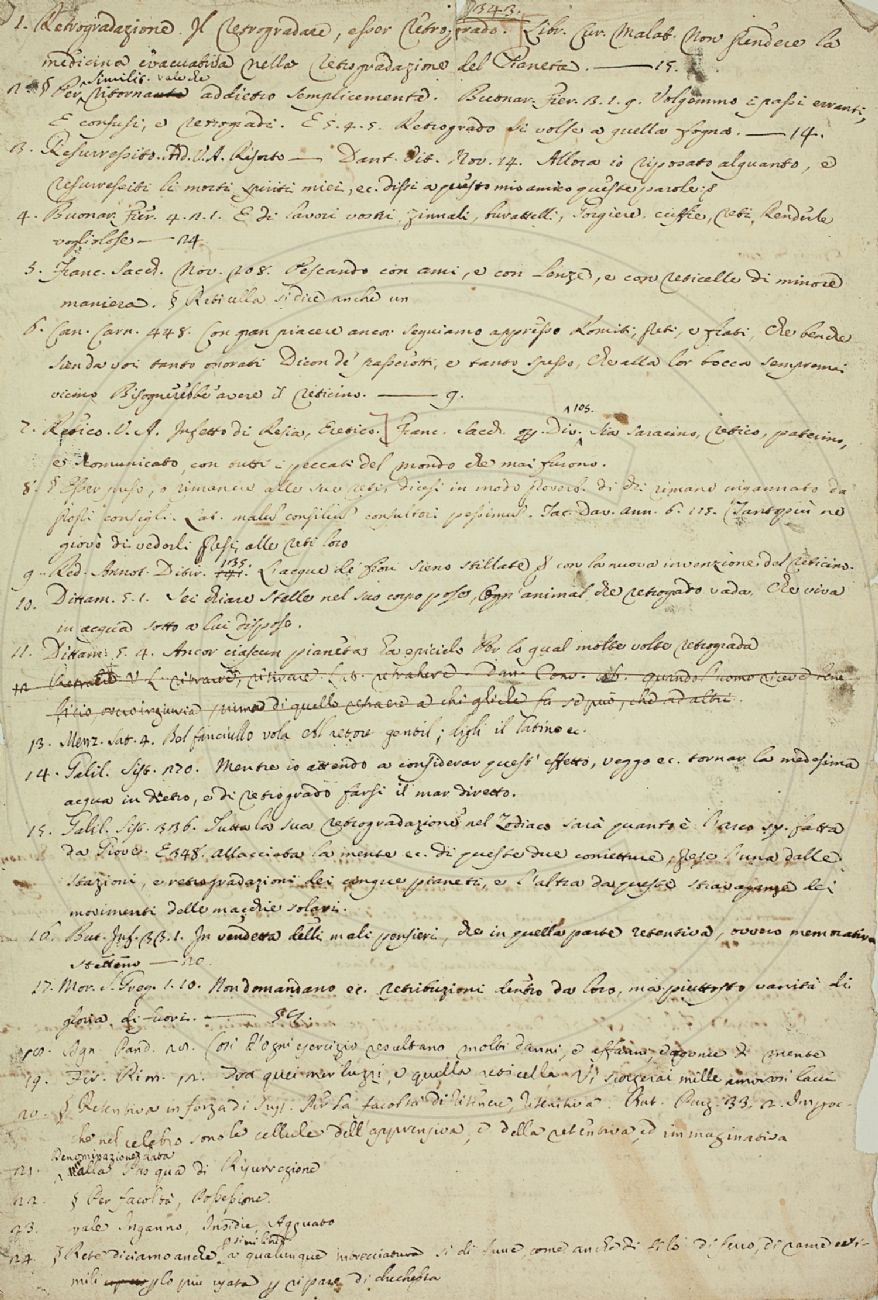 343.
1. Retrogradazione. Il retrogradare, esser retrogrado. Libr. Cur. Malat. Non prendere la
medicina evacuativa nella retrogradazione del Pianeta. — 15.
Similit. vale
2. § Per ritornante addietro semplicemente. Buonar. Fier. 3. 1. 9. Volgemmo i passi erranti,
E confusi, e retrogradi. E 5. 4. 5. Retrogrado si volse a quella fogna. — 14.
3. Resurressito. Add. V. A. Risorto — Dant. Vit. Nov. 14. Allora io riposato alquanto, e
resurressiti li morti spiriti miei, ec. dissi a questo mio amico queste parole
4. Buonar. Fier. 4. 2. 1. E di lavori vostri, zinnali, burattelli, Torgiere, cuffie, reti, Renderle
vogliolose — 24
5. Franc. Sacch. Nov. 208. Pescando con ami, e con lenze, e con reticelle di minore
maniera. § Reticella si dice anche un
6. Can. Carn. 448. Con gran piacere ancor seguiamo appresso Romiti, Preti, e frati, Che benche
sien da voi tanto onorati Dicon de' passerotti, e tanto spesso, Che alla lor bocca sempremai
vicino Bisognerebbe avere il reticino. — 9.
105.
7. Retico. V. A. Infetto di Resia, Eretico. Franc. Sacch. Op. Div. Sia Saracino, retico, paterino,
e scomunicato, con tutti i peccati del mondo che mai furono.
8. § Esser preso, o rimanere alle sue reti, dicesi in modo proverb. di chi rimane ingannato da'
proprj consigli. Lat. malum consilium consultori pessimum. Tac. Dav. ann. 6. 115. Tanto più ne
giovò di vederli presi alle reti loro
135.
9. Red. Annot. Ditir. L'acque di fiori sieno stillate con la nuova invenzione del reticino.
10. Dittam. 5. 1. Sei chiare stelle nel suo corpo pose, Ogni animal che retrogado vada, Che viva
in acqua sotto a lui dispose.
11. Dittam. 5. 4. Ancor ciascun pianeta ha epiciclo Per lo qual molte volte retrograda
12. Retraere V. L. ritrarre, ritirare Lat. retrahere. Dan. Conv. quando l'uomo riceve bene-
ficio, ovvero ingiuria prima di quello retraere a chi gliele fa se può, che ad altri.
13. Menz. Sat. 4. Bel fanciullo vola Al retor gentil; digli il latino ec.
14. Galil. Sist. 270. Mentre io attendo a considerar quest' effetto, veggo ec. tornar la medesima
acqua in dietro, e di retrogrado farsi il mar diretto.
15. Galil. Sist. 336. Tutta la sua retrogradazione nel Zodiaco sarà quanto è l'arco fatta
da Giove. E 348. allacciata la mente ec. di queste due conietture, prese l'una dalle
stazioni, e retrogradazioni dei cinque pianeti, e l'altra da queste stravaganze dei
movimenti delle macchie solari.
16. But. Inf. 33. 1. In vendetta delli mali pensieri, che in quella parte retentiva, ovvero memorativa
stetteno — 20.
17. Mor. S. Greg. 1. 10. Non domandano ec. retribuzioni dentro da loro, ma piuttosto vanità di
gloria di fuori. —
18. Agn. Pand. 28. Così d'ogni esercizio resultano molti danni, e affanni, ed agonie di mente
19. Fir. Rim. 12. Tra quei merluzzi, e quella reticella Vi scorgerai mille amorosi lacci
20. § Retentiva in forza di Sust. Per la facoltà di ritenere, Ritentiva. But. Purg. 33. 2. Imper-
chè nel celebro sono le cellule dell'apprensiva, e della retentiva, ed immaginativa
Denominazione data
21. alla Pasqua di Risurrezione
22. § Per facoltà, Possessione.
23. vale Inganno, Insidie, Agguato
similit.
24. § Rete diciamo anche a qualunque intrecciatura sì di fune, come anche di filo di ferro, di rame e si-
mili lo più usata p riparo di chechessia